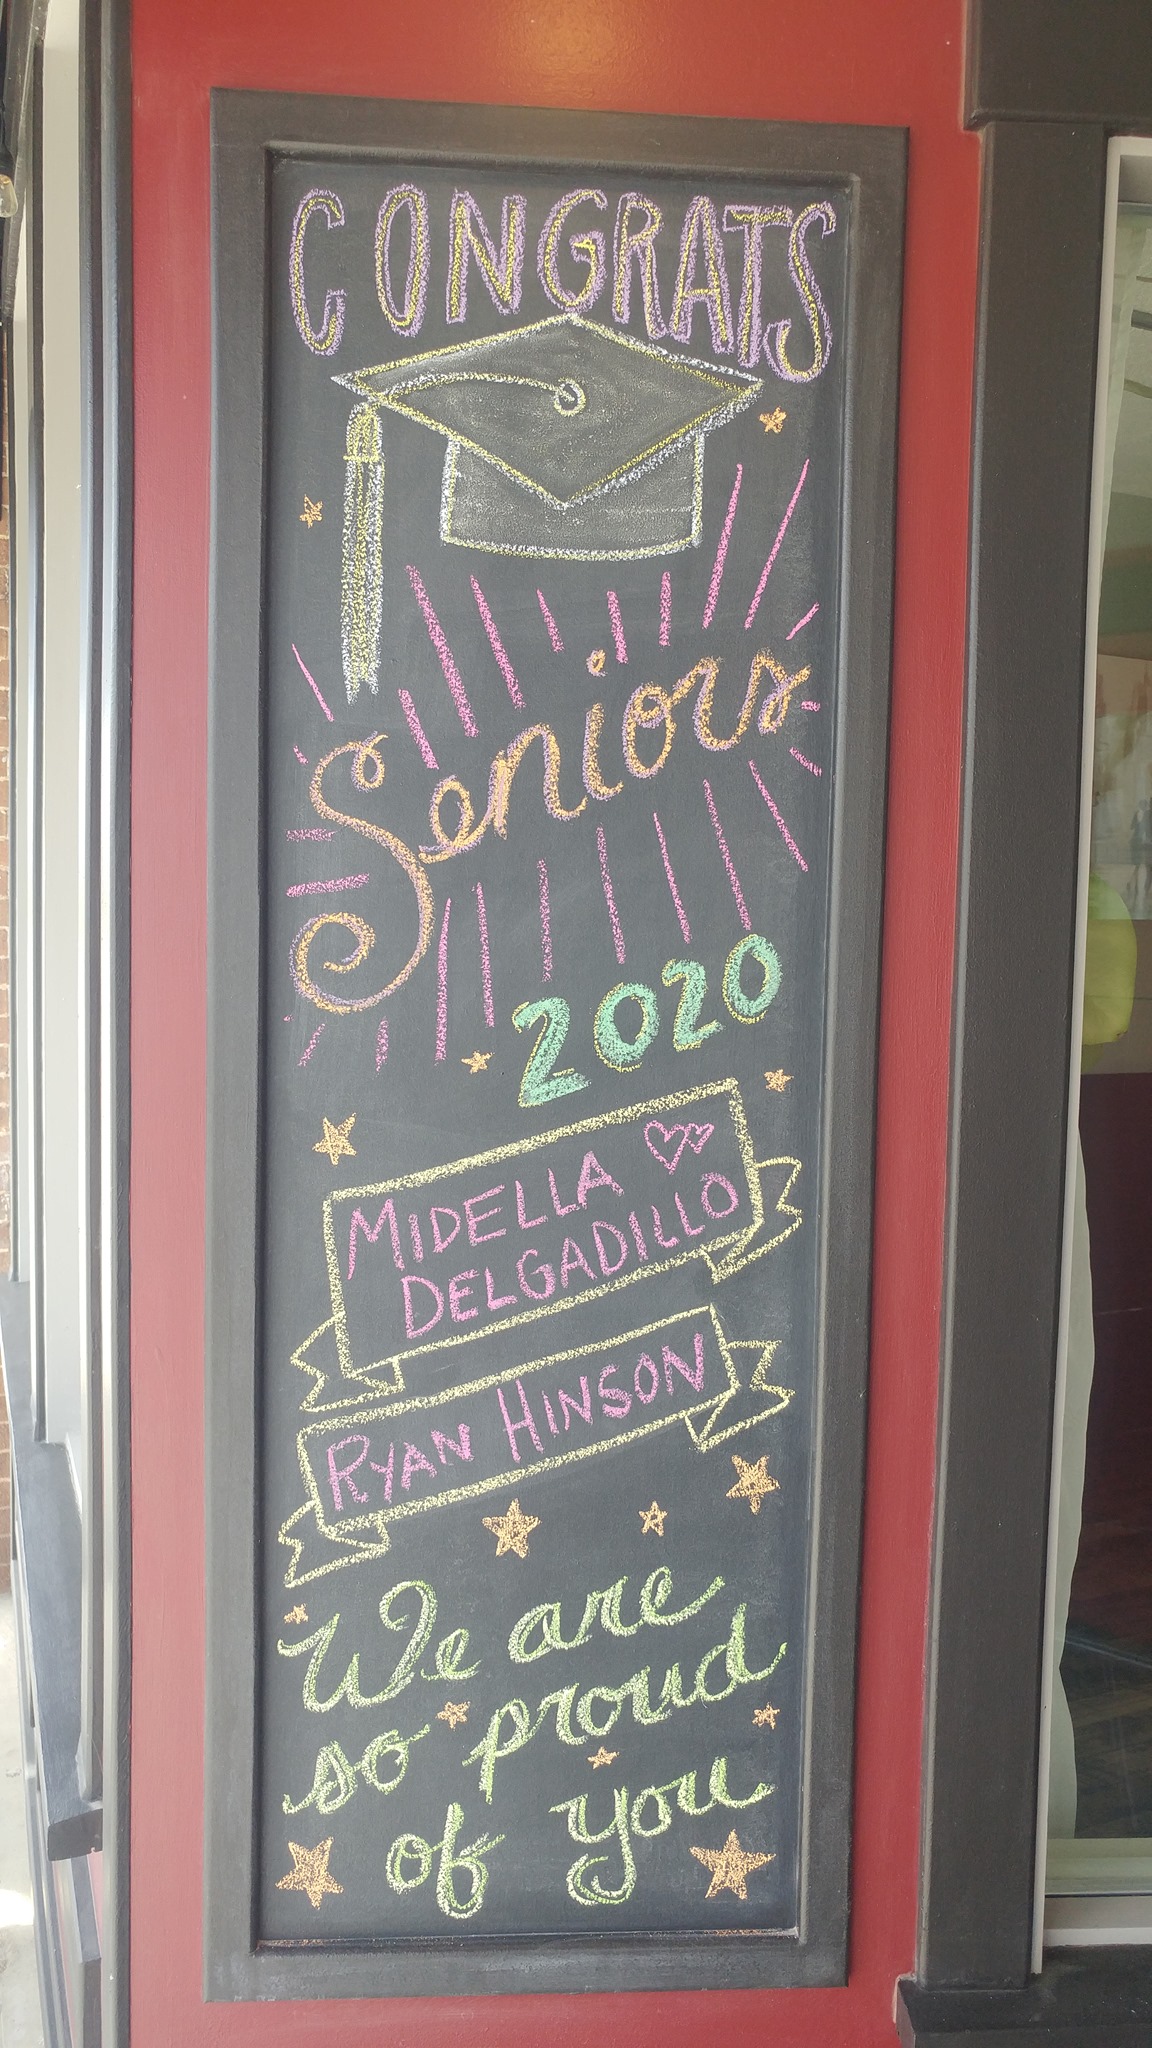 CONGRATS
Seniors
2020
MIDELLA
DELGADILLO
RYAN HINSON
We are
so proud
of you